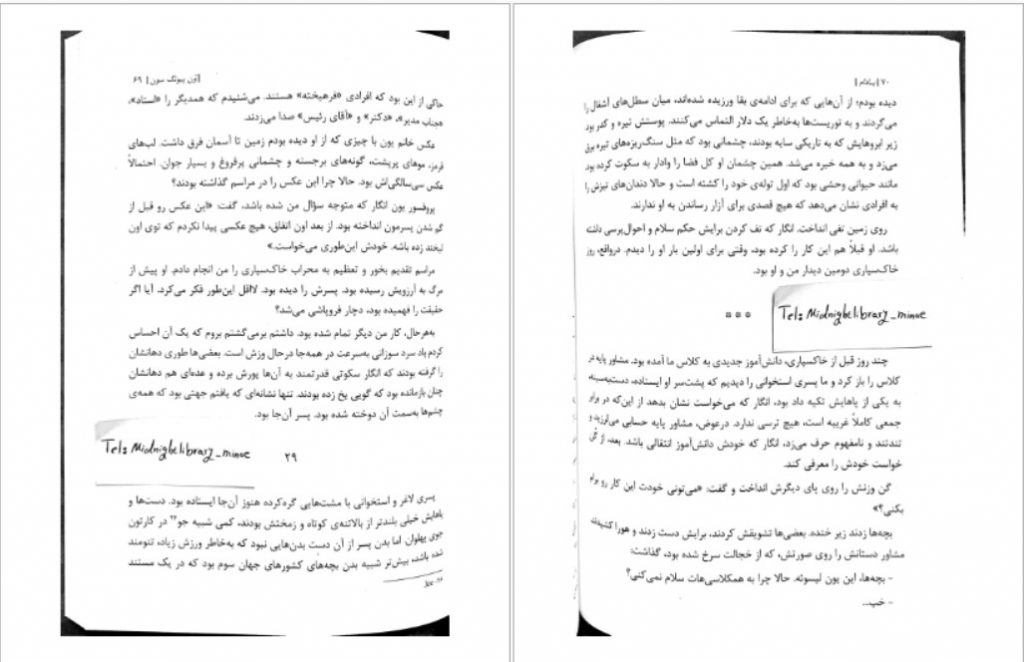 | اون پیونگ سون | ۶۹
حاکی از این بود که افرادی «فرهیخته» هستند. می‌شنیدم که همدیگر را «استاد»،
«جناب مدیر»، «دکتر» و «آقای رئیس» صدا می‌زدند.
عکس خانم یون با چیزی که از او دیده بودم زمین تا آسمان فرق داشت. لب‌های
قرمز، موهای پرپشت، گونه‌های برجسته و چشمانی پرفروغ و بسیار جوان. احتمالاً
عکس سی‌سالگی‌اش بود. حالا چرا این عکس را در مراسم گذاشته بودند؟
پروفسور یون انگار که متوجه سؤال من شده باشد، گفت: «این عکس رو قبل از
گم شدن پسرمون انداخته بود. از بعد اون اتفاق، هیچ عکسی پیدا نکردم که توی اون
لبخند زده باشه. خودش این‌طوری می‌خواست.»
مراسم تقدیم بخور و تعظیم به محراب خاک‌سپاری را من انجام دادم. او پیش از
مرگ به آرزویش رسیده بود. پسرش را دیده بود. لااقل این‌طور فکر می‌کرد. آیا اگر
حقیقت را فهمیده بود، دچار فروپاشی می‌شد؟
به‌هرحال، کار من دیگر تمام شده بود. داشتم برمی‌گشتم بروم که یک آن احساس
کردم باد سرد سوزانی به‌سرعت در همه‌جا درحال وزش است. بعضی‌ها طوری دهانشان
را گرفته بودند که انگار سکوتی قدرتمند به آن‌ها یورش برده و عده‌ای هم دهانشان
چنان بازمانده بود که گویی یخ زده بودند. تنها نشانه‌ای که یافتم جهتی بود که همه‌ی
چشم‌ها به‌سمت آن دوخته شده بود. پسر آن‌جا بود.
Tel: Midnightlibrary_minoe
۲۹
پسری لاغر و استخوانی با مشت‌هایی گره‌کرده هنوز آن‌جا ایستاده بود. دست‌ها و
پاهایش خیلی بلندتر از بالاتنه‌ی کوتاه و زمختش بودند، کمی شبیه جو در کارتون
جوی پهلوان. اما بدن پسر از آن دست بدن‌هایی نبود که به‌خاطر ورزش زیاد، تنومند
شده باشد، بیش‌تر شبیه بدن بچه‌های کشورهای جهان سوم بود که در یک مستند
Joe
۷۰ | بادام |
دیده بودم؛ از آن‌هایی که برای ادامه‌ی بقا ورزیده شده‌اند، میان سطل‌های آشغال را
می‌گردند و به توریست‌ها به‌خاطر یک دلار التماس می‌کنند. پوستش تیره و کدر بود.
زیر ابروهایش که به تاریکی سایه بودند، چشمانی بود که مثل سنگ‌ریزه‌های تیره برق
می‌زد و به همه خیره می‌شد. همین چشمان او کل فضا را وادار به سکوت کرده بود.
مانند حیوانی وحشی بود که اول توله‌ی خود را کشته است و حالا دندان‌های تیزش را
به افرادی نشان می‌دهد که هیچ قصدی برای آزار رساندن به او ندارند.
روی زمین تفی انداخت. انگار که تف کردن برایش حکم سلام و احوال‌پرسی داشته
باشد. او قبلاً هم این کار را کرده بود، وقتی برای اولین بار او را دیدم. درواقع، روز
خاک‌سپاری دومین دیدار من و او بود.
Tel: Midnightlibrary_minoe
***
چند روز قبل از خاک‌سپاری، دانش‌آموز جدیدی به کلاس ما آمده بود. مشاور پایه در
کلاس را باز کرد و ما پسری استخوانی را دیدیم که پشت‌سر او ایستاده، دست‌به‌سینه،
به یکی از پاهایش تکیه داد بود، انگار که می‌خواست نشان بدهد از این‌که در برابر
جمعی کاملاً غریبه است، هیچ ترسی ندارد. درعوض، مشاور پایه حسابی می‌لرزید و
تندتند و نامفهوم حرف می‌زد، انگار که خودش دانش‌آموز انتقالی باشد. بعد، از گن
خواست خودش را معرفی کند.
گن وزنش را روی پای دیگرش انداخت و گفت: «می‌تونی خودت این کار رو برام
بکنی؟»
بچه‌ها زدند زیر خنده. بعضی‌ها تشویقش کردند، برایش دست زدند و هورا کشیدند.
مشاور دستانش را روی صورتش، که از خجالت سرخ شده بود، گذاشت:
- بچه‌ها، این یون لیسوئه. حالا چرا به همکلاسی‌هات سلام نمی‌کنی؟
- خب...